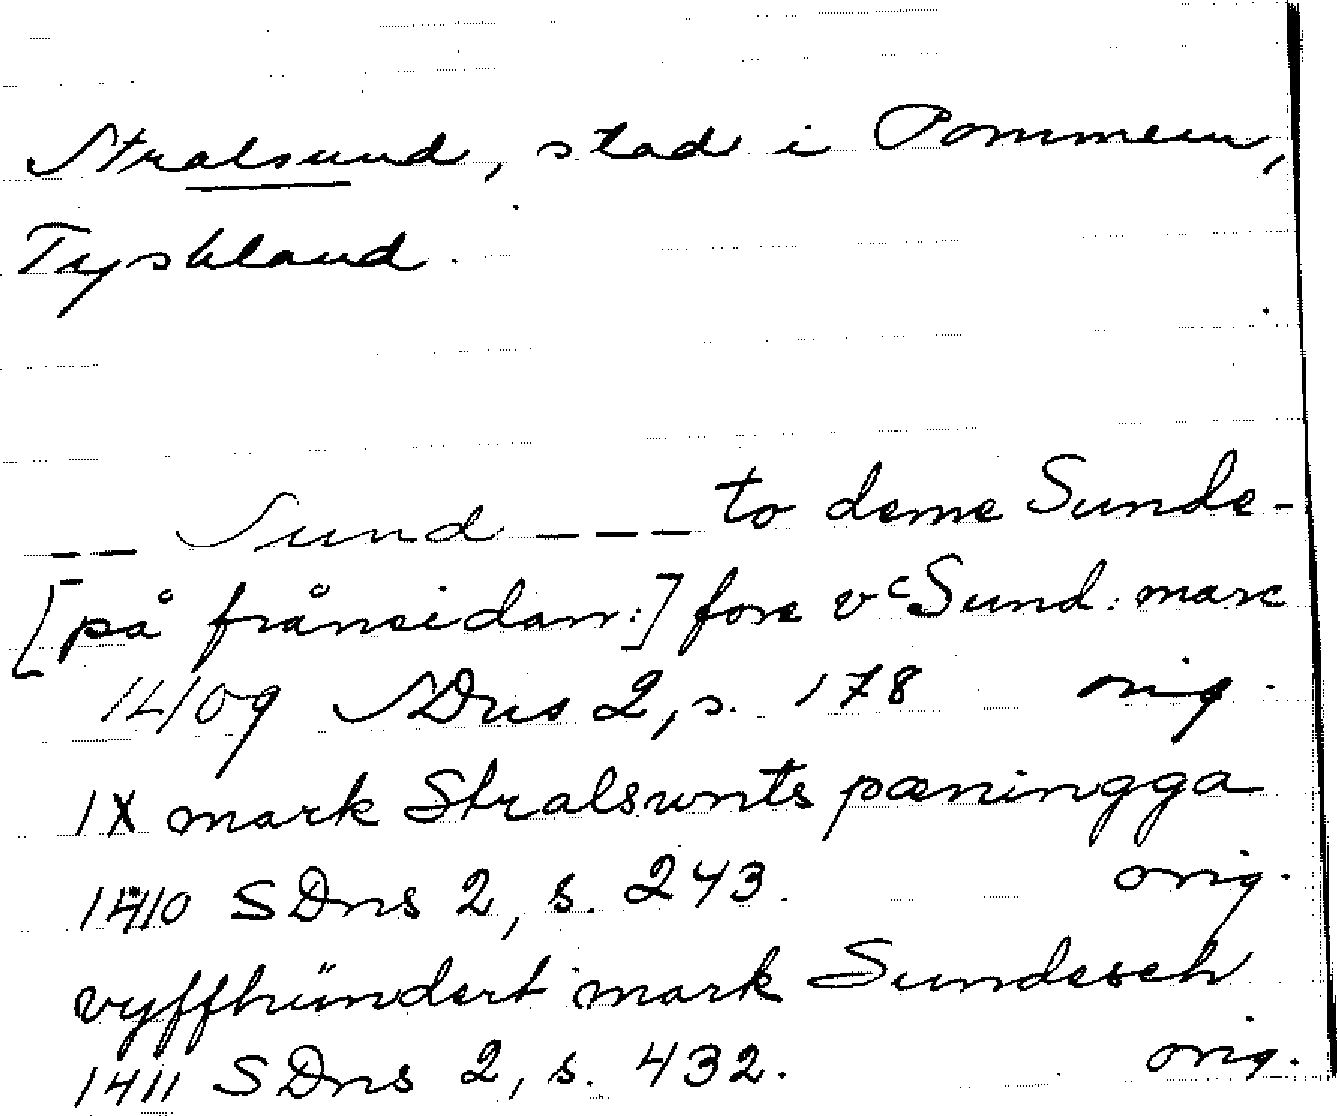 Stralsund, stad i Pommern,
Tyskland.
-- Sund --- to deme Sunde -
[på frånsidan:] fore vc Sund: marc
1409 SDns 2, s. 178 orig.
IX mark Stralsunts pæningga
1410 SDns 2, s. 243. orig.
vyffhündert mark Sundesch
1411 SDns 2, s. 432. orig.